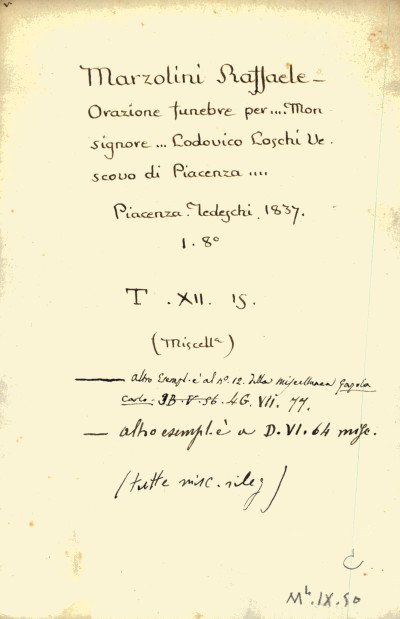 Marzolini Raffaele -
Orazione funebre per.... Mon
signore ... Lodovico Loschi Ve.
scovo di Piacenza ....
Piacenza. Tedeschi. 1837.
1. 8°
T. XII. 15.
(Miscell.ª)
— altro esempl. è al n°. 12. della miscellanea
Carlo. 3B. V. 56. 4G. VII. 77.
— altro esempl. è a D. VI. 64 misc.
(tutte misc. rileg)
C
M^b. IX. 50